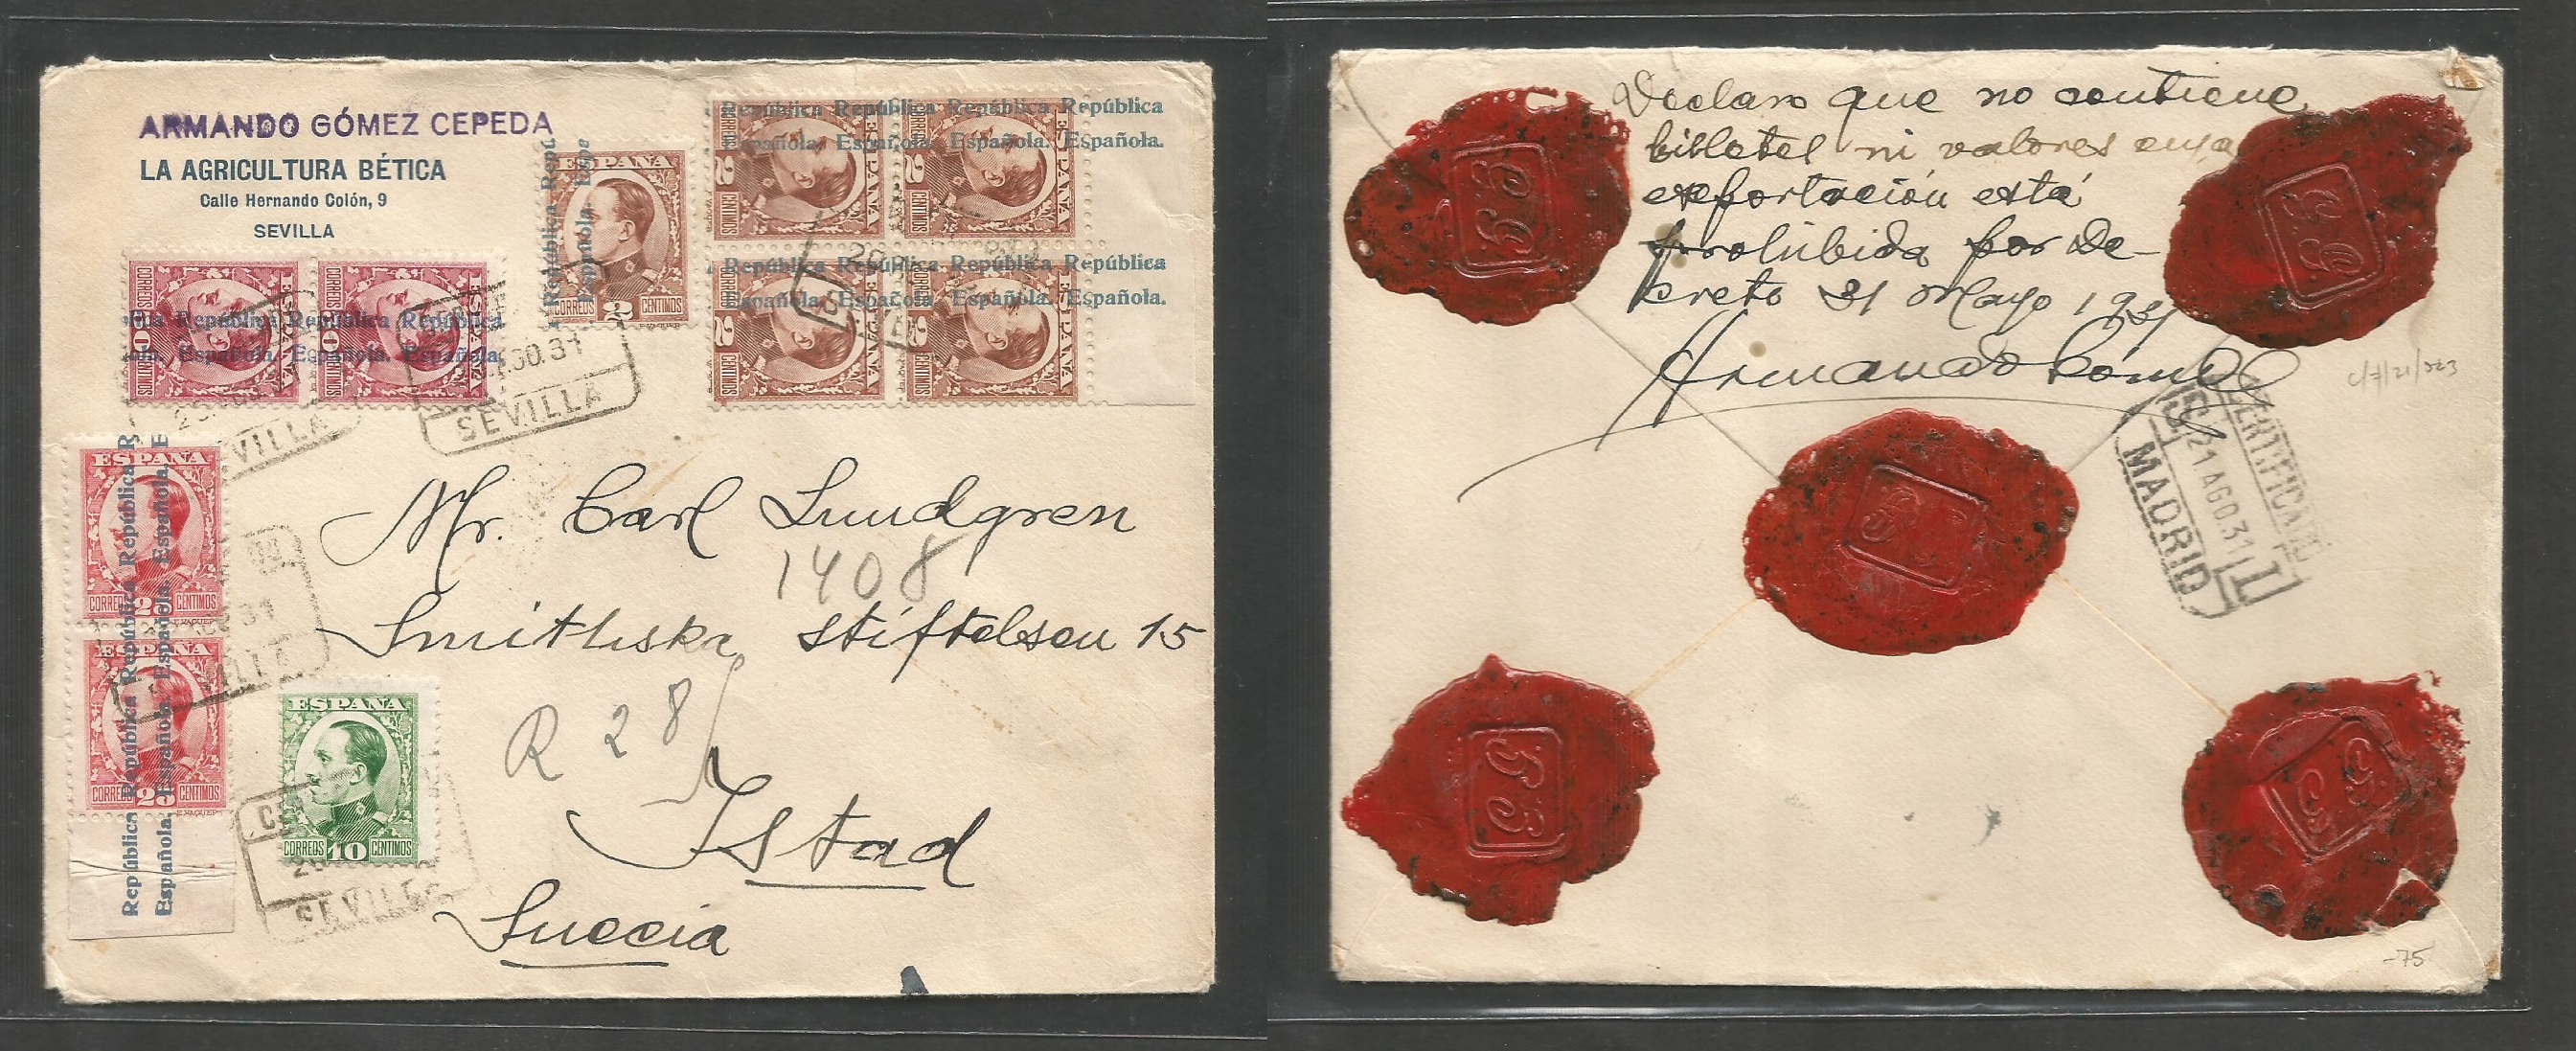 ARMANDO GÓMEZ CEPEDA
LA AGRICULTURA BÉTICA
Calle Hernando Colón, 9
SEVILLA
República República República República
Española. Española. Española. Española.
República República República República
Española. Española. Española. Española.
ESPAÑA
CORREOS 2 CENTIMOS
República Repú
Española. Espa
República República República
Española. Española. Española.
AGO.31
SEVILLA
SEVILLA
ESPAÑA
CORREOS 25 CENTIMOS
ESPAÑA
CORREOS 25 CENTIMOS
República República República República R
Española. Española. Española. Española. E
SEVILLA
ESPAÑA
CORREOS 10 CENTIMOS
SEVILLA
Mr. Carl Lundgren
1408
Smithska Stiftelsen 15
R 28
Ystad
Suecia
Declaro que no contiene
billetes ni valores cuya
exportación está
prohibida por De-
creto 31 Mayo 1931
Armando Gómez
CERTIFICADO
21 AGO.31
MADRID
G.G.
G.G.
G.G.
G.G.
G.G.
-75